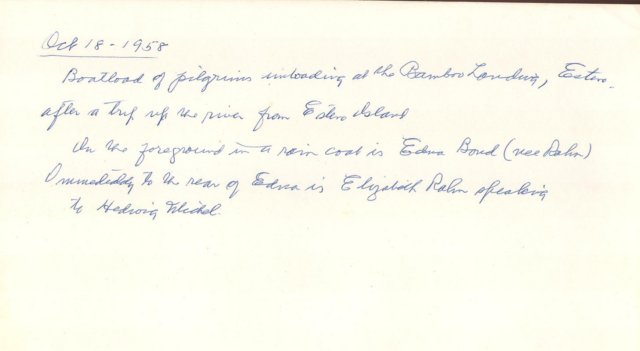 Oct 18 - 1958
Boatload of pilgrims unloading at the Bamboo Landing, Estero.
after a trip up the river from Estero Island
In the foreground in a rain coat is Edna Bond (nee Rahn)
Immediately to the rear of Edna is Elizabeth Rahn speaking
to Hedwig Michel.